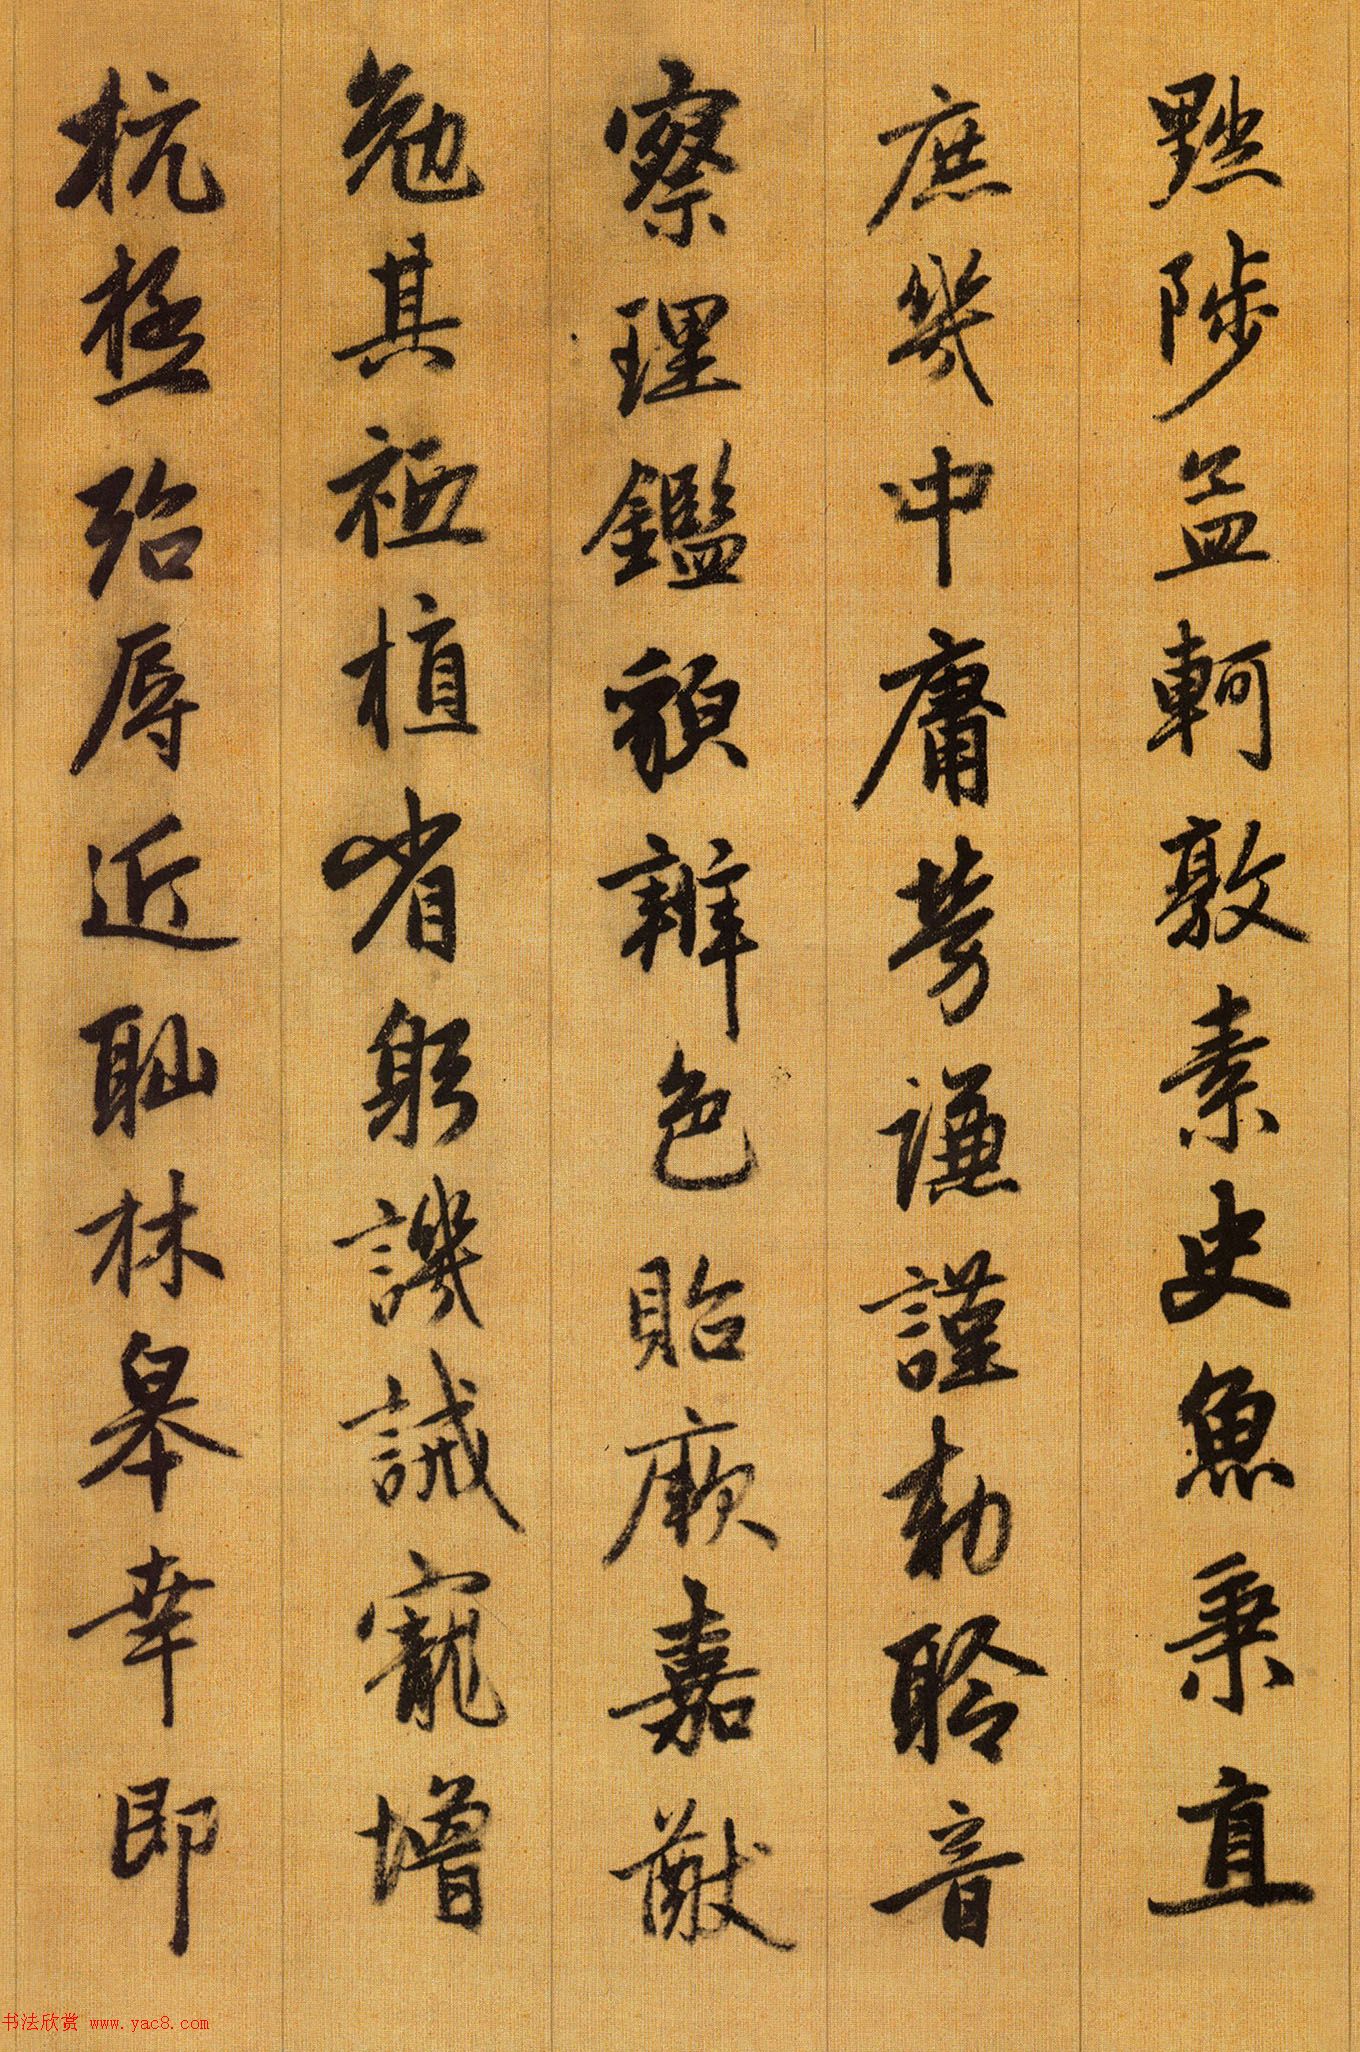 黜陟孟軻敦素史魚秉直
庶幾中庸勞謙謹勅聆音
察理鑑貌辨色貽厥嘉猷
勉其祗植省躬譏誡寵增
杭極殆辱近耻林皋幸即
书法欣赏 www.yac8.com